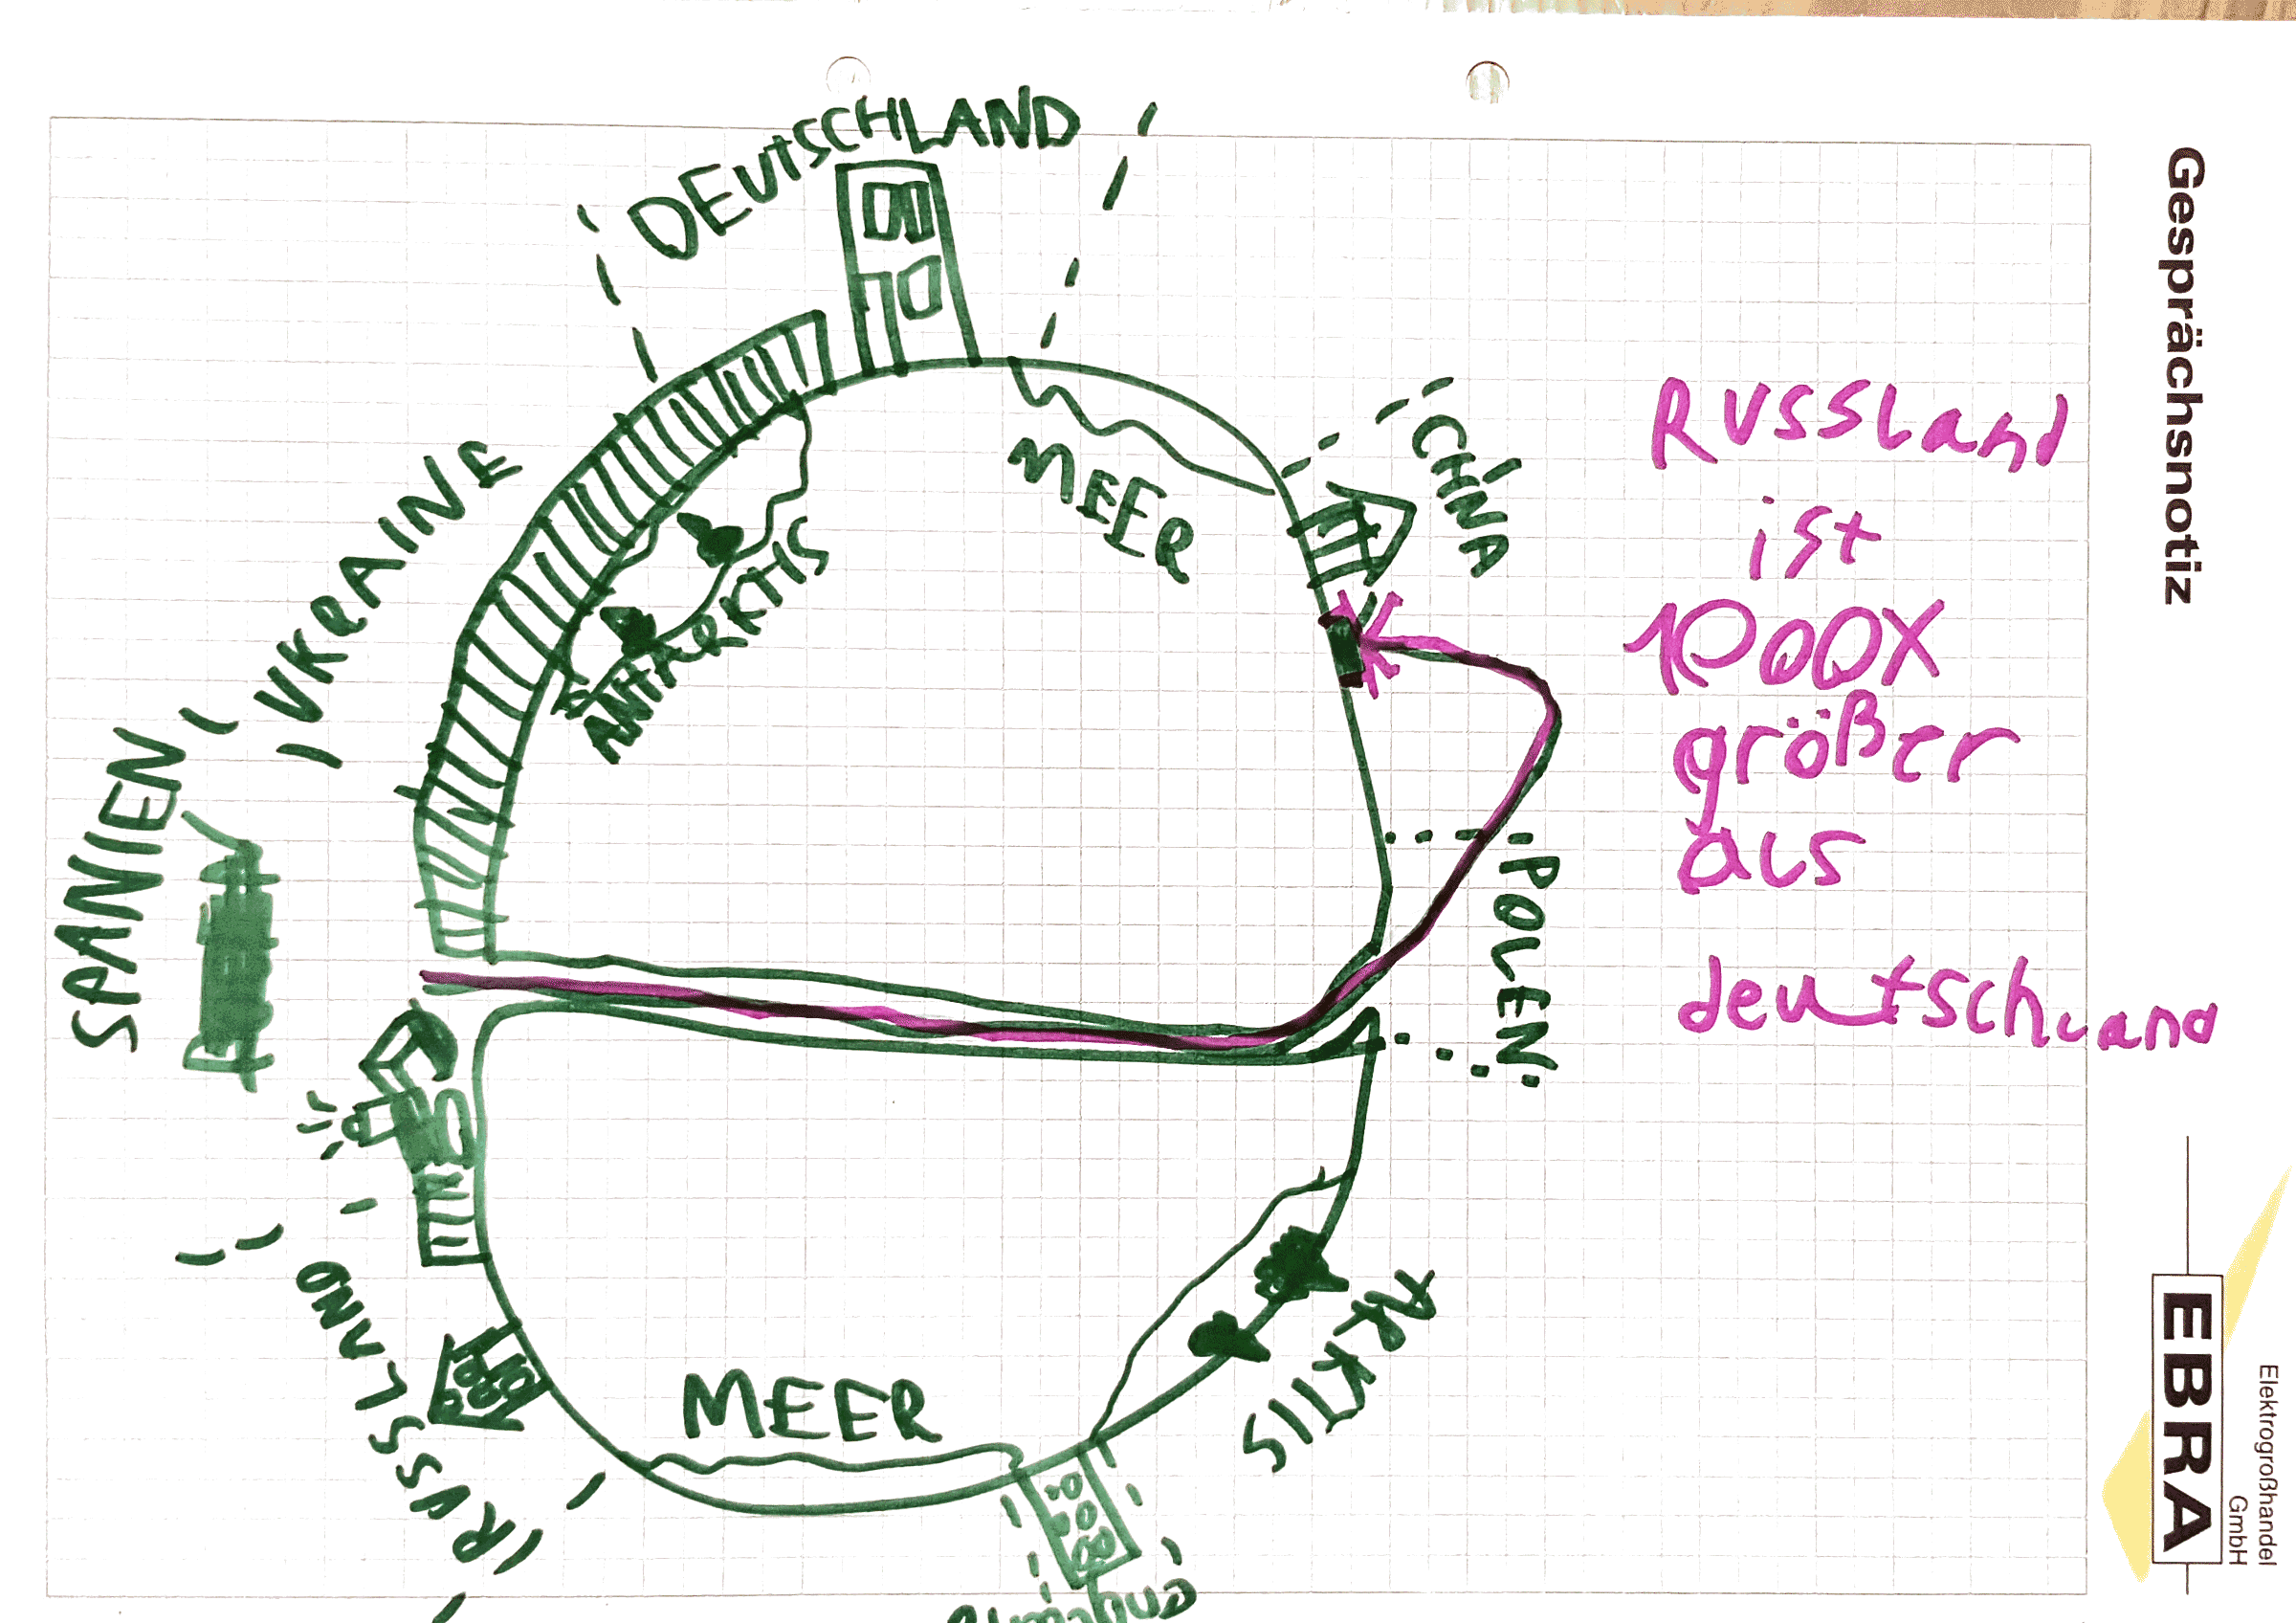 DEUTSCHLAND
MEER
CHINA
UKRAINE
ANTARKTIS
SPANIEN
POLEN
RUSSLAND
MEER
ARKTIS
Russland
ist
1000X
größer
als
deutschland
Gesprächsnotiz
EBRA
Elektrogroßhandel
GmbH